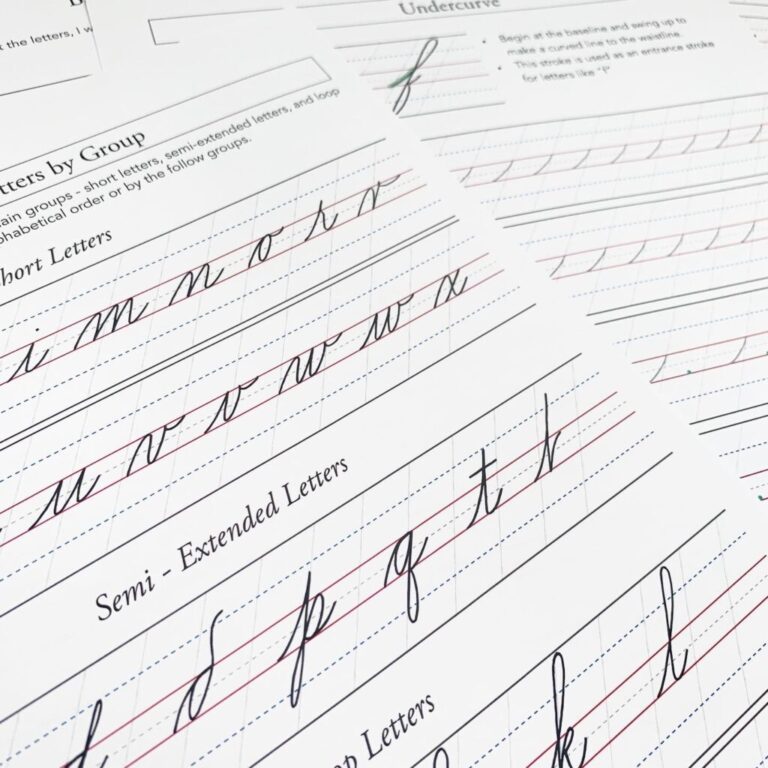 t the letters, I w
Undercurve
• Begin at the baseline and swing up to
make a curved line to the waistline.
• This stroke is used as an entrance stroke
for letters like "i"
f
tters by Group
ain groups - short letters, semi-extended letters, and loop
phabetical order or by the follow groups.
hort Letters
i m n o r v
u v v w w x
Semi - Extended Letters
d d p q t t
op Letters
k l